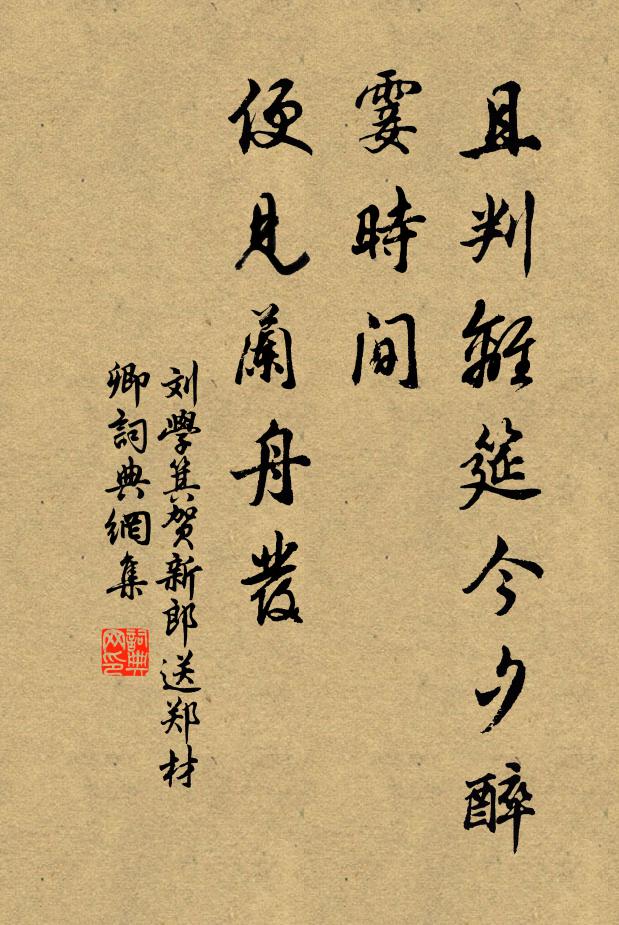 且判離筵今夕醉
霎時間
便見蘭舟發
刘學箕贺新郎送郑材
卿詞典網集
詞典
网印